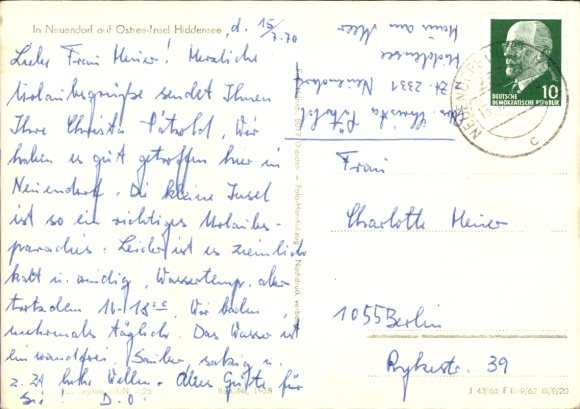 In Neuendorf auf Ostsee-Insel Hiddensee, d. 15/7.70
Liebe Frau Meier! Herzliche
Urlaubsgrüße sendet Ihnen
Ihre Christa Pätzold. Wir
haben es gut getroffen hier in
Neuendorf. Die kleine Insel
ist so ein richtiges Urlaubs-
paradies. Leider ist es ziemlich
kalt u. windig, Wassertemp. aber
trotzdem 16-18°C. Wir baden
mehrmals täglich. Das Wasser ist
einwandfrei. Sauber, salzig u.
z. Zt hohe Wellen. Alles Gute für
Sie! D.O.
Christa Pätzold
z. Zt. 2331 Neuendorf
Hiddensee
Haus am Meer
10
DEUTSCHE
DEMOKRATISCHE REPUBLIK
NEUENDORF
c
Frau
Charlotte Meier
1055 Berlin
Rykestr. 39
J 43/66 F III/9/62 III/9/20